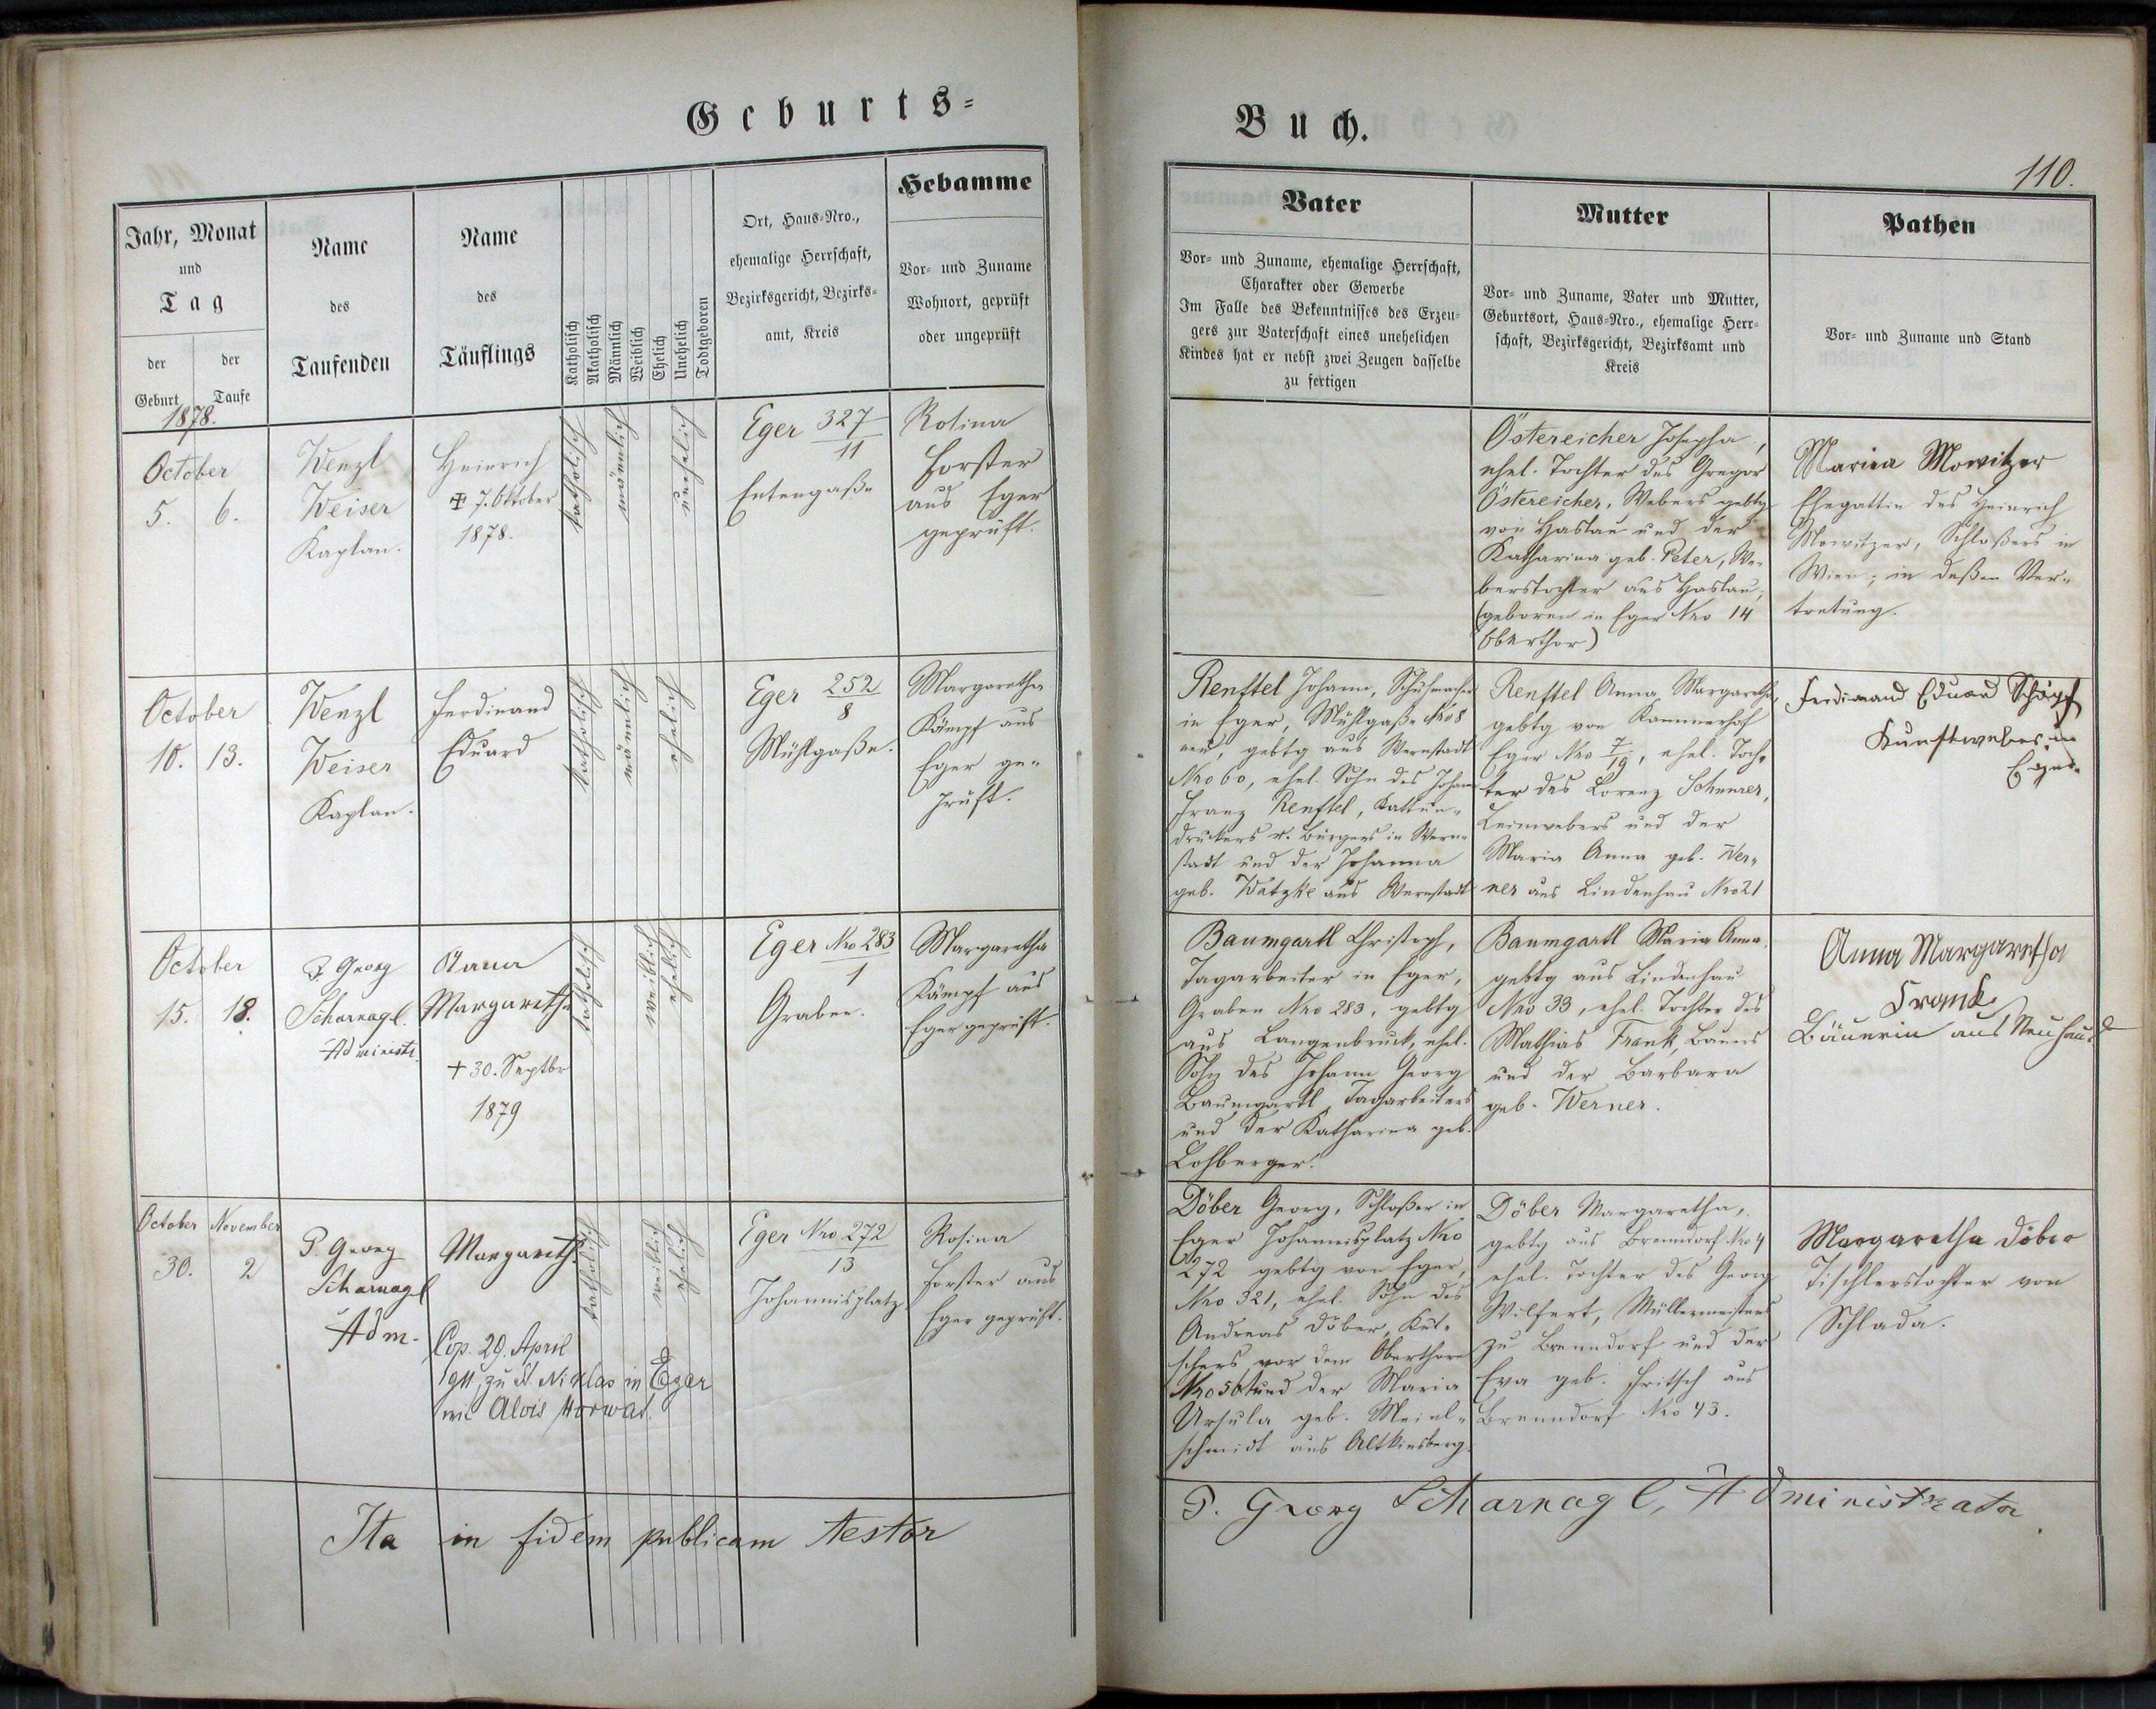 Geburts=
Buch.
110.
Jahr, Monat
und
Tag
der
Geburt
der
Taufe
Name
des
Taufenden
Name
des
Täuflings
Katholisch
Akatholisch
Männlich
Weiblich
Ehelich
Unehelich
Todtgeboren
Ort, Haus=Nro.,
ehemalige Herrschaft,
Bezirksgericht, Bezirks=
amt, Kreis
Hebamme
Vor= und Zuname
Wohnort, geprüft
oder ungeprüft
Vater
Vor= und Zuname, ehemalige Herrschaft,
Charakter oder Gewerbe
Im Falle des Bekenntnisses des Erzeu=
gers zur Vaterschaft eines unehelichen
Kindes hat er nebst zwei Zeugen dasselbe
zu fertigen
Mutter
Vor= und Zuname, Vater und Mutter,
Geburtsort, Haus=Nro., ehemalige Herr=
schaft, Bezirksgericht, Bezirksamt und
Kreis
Pathen
Vor= und Zuname und Stand
1878.
October
5. 6.
Wenzl
Weiser
Kaplan.
Heinrich
7. Oktober
1878.
katholisch
männlich
unehelich
Eger 327
11
Entengaße
Rosina
Forster
aus Eger
geprüft.
Östereicher Josepha,
ehel. Tochter des Gregor
Östereicher, Webers gebtg
von Haslau und der
Katharina geb. Peter, We=
berstochter aus Haslau,
(geboren in Eger Nro 14
Oberthor)
Maria Mowitzer
Ehegattin des Heinrich
Mowitzer, Schloßers in
Wien; in deßen Ver=
tretung.
October
10. 13.
Wenzl
Weiser
Kaplan.
Ferdinand
Eduard
katholisch
männlich
ehelich
Eger 252
8
Mühlgaße.
Margaretha
Kämpf aus
Eger ge=
prüft.
Renftel Johann, Schuhmacher
in Eger, Mühlgaße Nro 8
neu, gebtg aus Wernstadt
Nro 60, ehel. Sohn des Johann
Franz Renftel, Kattun=
druckers u. Bürgers in Wern=
stadt und der Johanna
geb. Watzke aus Wernstadt
Renftel Anna Margaretha,
gebtg von Kammerhof
Eger Nro 7/19, ehel. Toch=
ter des Lorenz Schnurer,
Leinwebers und der
Maria Anna geb. Wer=
ner aus Lindenhau Nro 21
Ferdinand Eduard Schöpf
Kunstweber in
Eger.
October
15. 18.
P. Georg
Scharnagl.
Administr.
Anna
Margaretha
+ 30. Septbr
1879
katholisch
weiblich
ehelich
Eger Nro 283
1
Graben.
Margaretha
Kämpf aus
Eger geprüft.
Baumgartl Christoph,
Tagarbeiter in Eger,
Graben Nro 283, gebtg
aus Langenbruck, ehel.
Sohn des Johann Georg
Baumgartl Tagarbeiters
und der Katharina geb.
Lohberger.
Baumgartl Maria Anna,
gebtg aus Lindenhau
Nro 33, ehel. Tochter des
Mathias Frank, Bauers
und der Barbara
geb. Werner.
Anna Margaretha
Frank
Bäuerin aus Neuhaus
October November
30. 2
P. Georg
Scharnagl
Adm.
Margareth.
Cop. 29. April
1911, zu St Niklas in Eger
mit Alois Horwat.
katholisch
weiblich
ehelich
Eger Nro 272
13
Johannisplatz
Rosina
Forster aus
Eger geprüft.
Döber Georg, Schloßer in
Eger Johannisplatz Nro
272 gebtg von Eger,
Nro 321, ehel. Sohn des
Andreas Döber, Kut=
schers vor dem Oberthore
Nro 56 und der Maria
Ursula geb. Meinl=
schmidt aus Altkinsberg.
Döber Margaretha,
gebtg aus Brenndorf Nro 4
ehel. Tochter des Georg
Wilfert, Müllermeisters
zu Brenndorf und der
Eva geb. Fritsch aus
Brenndorf Nro 43.
Margaretha Döber
Tischlerstochter von
Schlada.
Ita in fidem publicam testor
P. Georg Scharnagl, Administrator